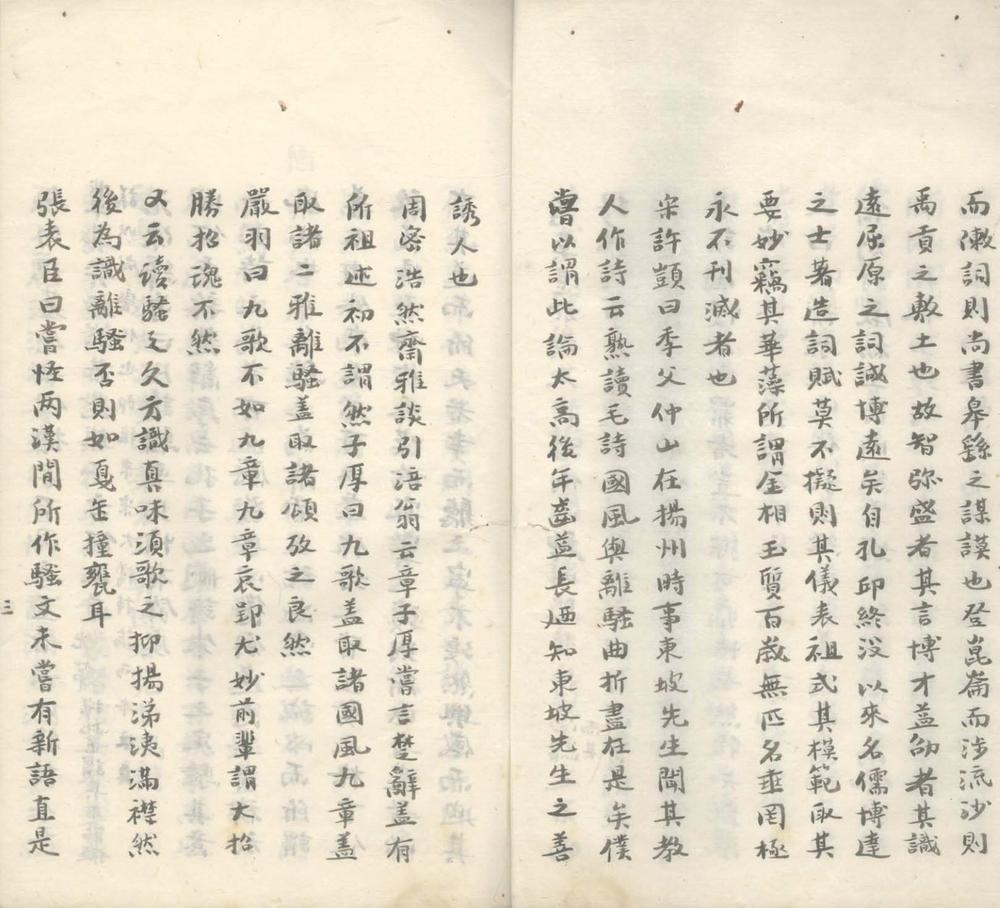 而漱詞則尚書皋繇之謀謨也登崑崙而涉流沙則
禹貢之敷土也故智弥盛者其言博才益劭者其識
遠屈原之詞誠博遠矣自孔邱終没以來名儒博達
之士著造詞賦莫不擬則其儀表祖式其模範取其
要妙竊其華藻所謂金相玉質百歲無匹名垂罔極
永不刊滅者也
宋許顗曰季父仲山在揚州時事東坡先生聞其教
人作詩云熟讀毛詩國風與離騷曲折盡在是矣僕
嘗以謂此論太高後年齒益長廼知東坡先生之善
誘人也
周密浩然齋雅談引涪翁云章子厚嘗言楚辭盖有
所祖述初不謂然子厚曰九歌盖取諸國風九章盖
取諸二雅離騷盖取諸頌攷之良然
嚴羽曰九歌不如九章九章哀郢尤妙前輩謂大招
勝招魂不然
又云讀騷之久方識真味須歌之抑揚涕洟滿襟然
後為識離騷否則如戛釜撞甕耳
張表臣曰嘗怪两漢間所作騷文未嘗有新語直是
三